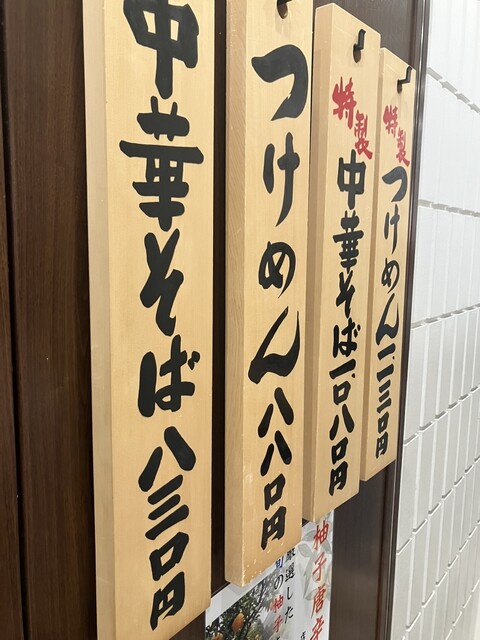 特製つけめん一.一三〇円
特製中華そば一.〇八〇円
つけめん八八〇円
中華そば八三〇円
柚子唐
厳選した
旬の柚子